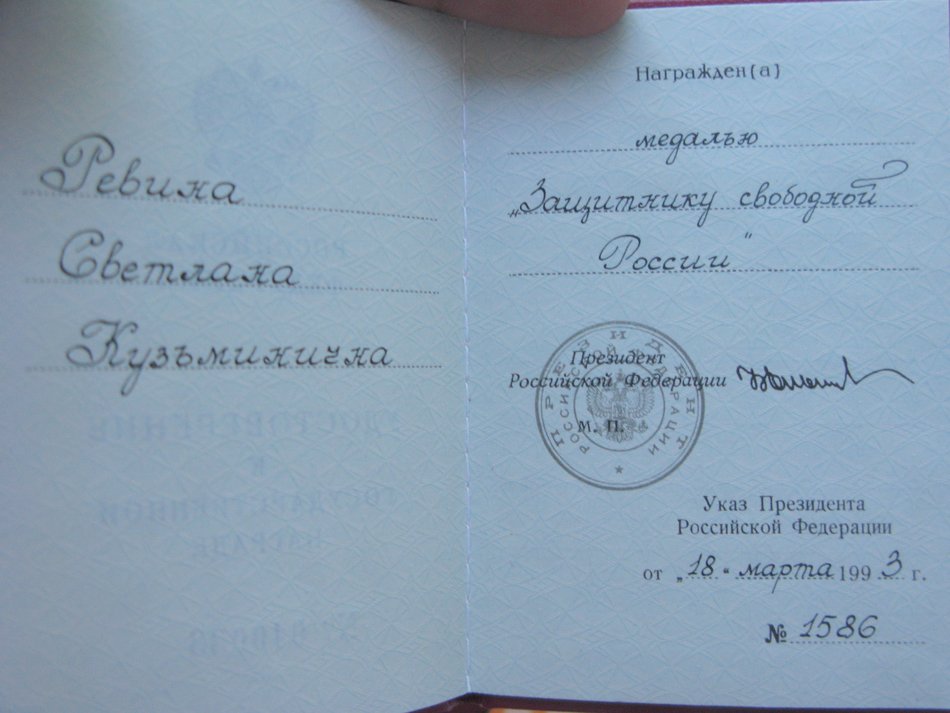 Ревина
Светлана
Кузьминична
Награжден(а)
медалью
„Защитнику свободной
России“
ПРЕЗИДЕНТ
РОССИЙСКОЙ ФЕДЕРАЦИИ
Президент
Российской Федерации
М. П.
Указ Президента
Российской Федерации
от „18“ марта 1993 г.
№ 1586